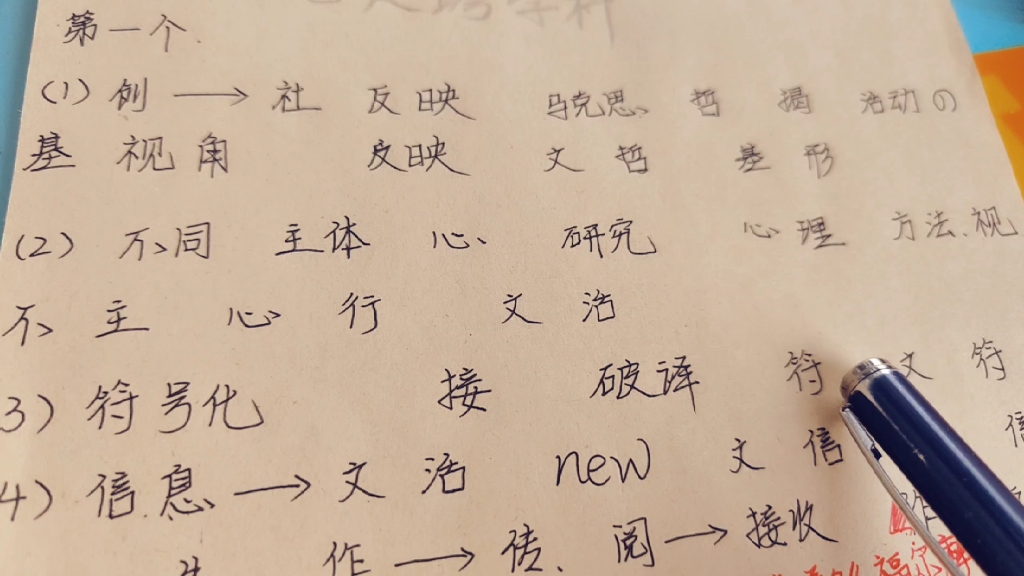 第一个.
(1) 创 → 社 反映 马克思 哲 揭 活动の
基 视角 反映 文 哲 基 形
(2) 不同 主体 心 研究 心理 方法、视
不 主 心 行 文 活
3) 符号化 接 破译 符 文 符
4) 信息 → 文 活 new 文 信 信
作 → 传、阅 → 接收